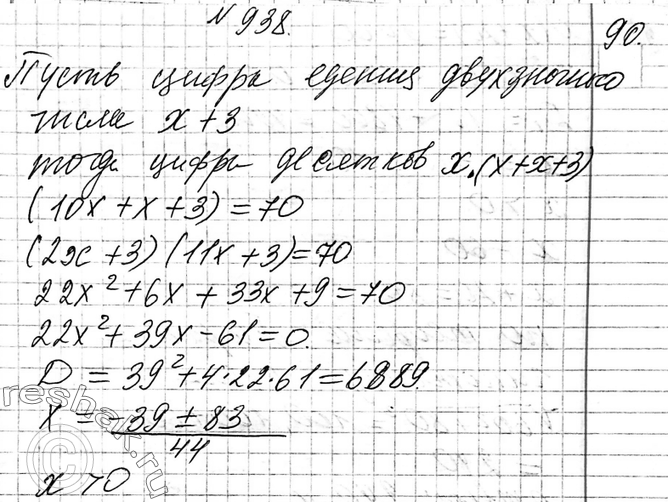 №938.
90.
Пусть цифра едениц двухзночного
числа x+3
тогда цифра десятков x.(x+x+3)
(10x+x+3)=70
(2x+3)(11x+3)=70
22x²+6x+33x+9=70
22x²+39x-61=0.
D=39²+4·22·61=6889
x=-39±83
44
x>0
reshak.ru